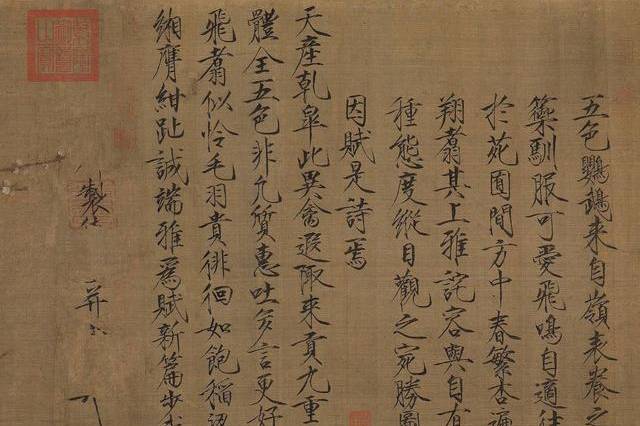 五色鸚鵡来自嶺表養之
籞馴服可愛飛鳴自適往
於苑囿間方中春繁杏遍
翔翥其上雅詫容與自有
種態度縱目觀之宛勝圖
因賦是詩焉
天産乾皐此異禽遐陬来貢九重
體全五色非凡質惠吐多言更好
飛翥似怜毛羽貴徘徊如飽稻
緗膺紺趾誠端雅爲賦新篇步
製
并